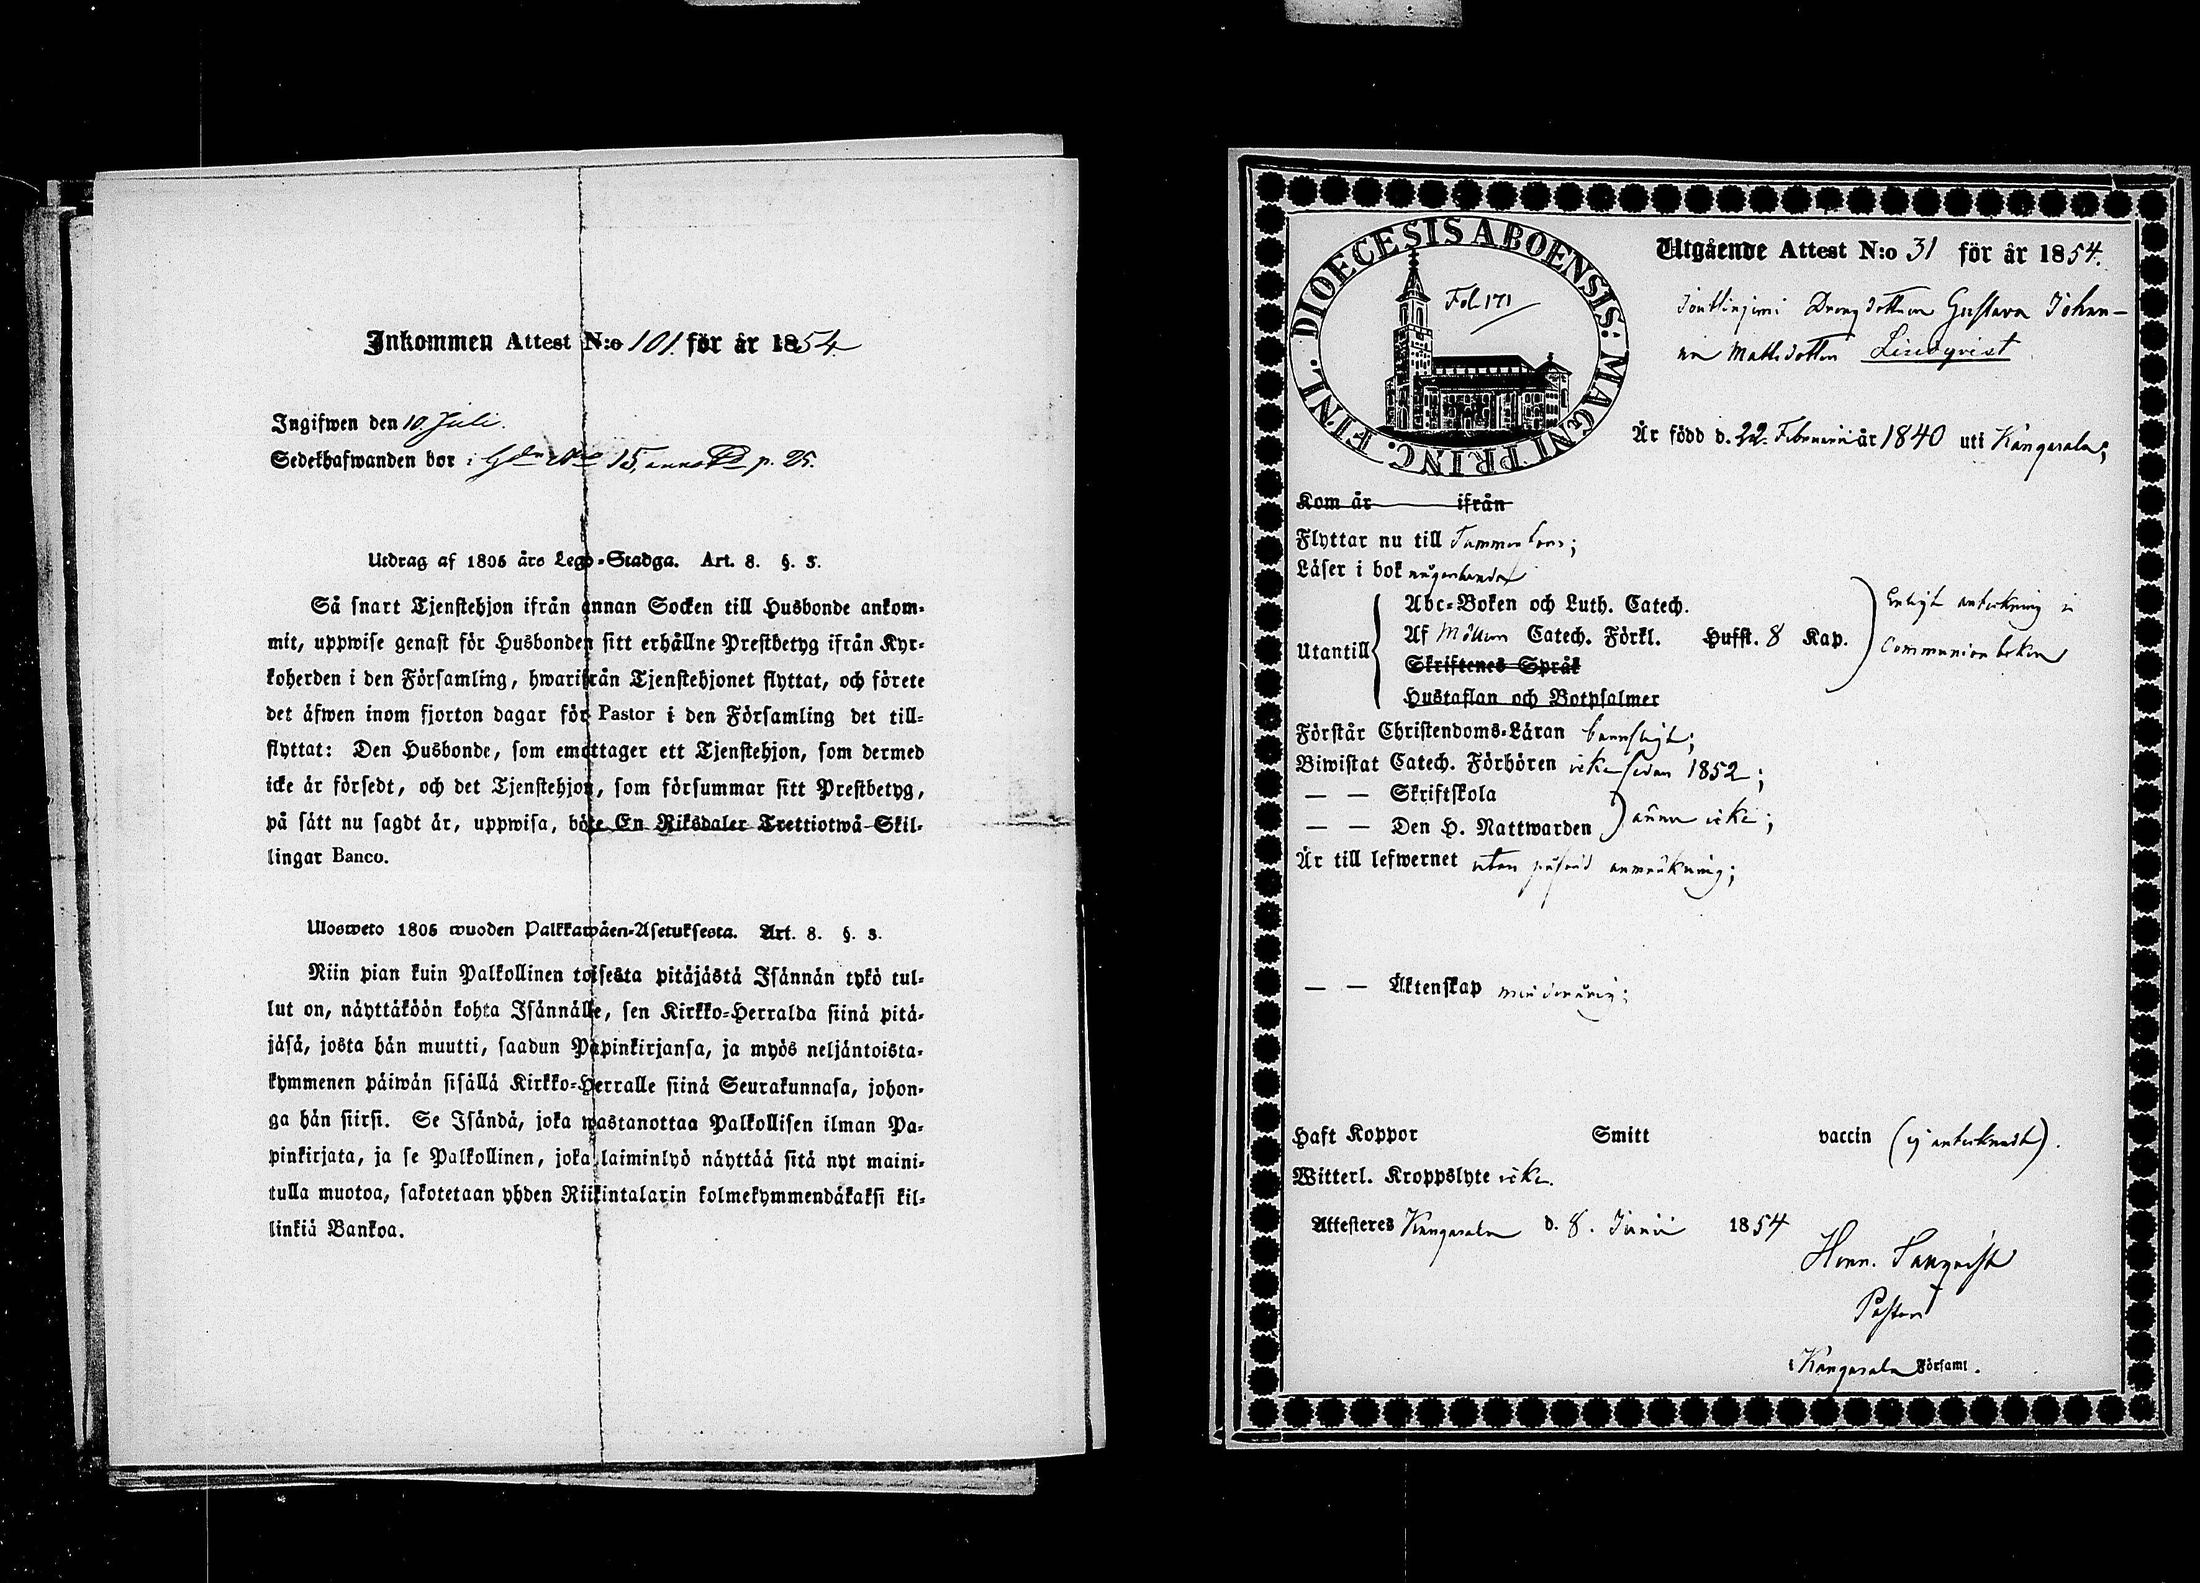 Inkommen Attest N:o 101. för år 1854.
Ingifwen den 10. Juli.
Sedelhafwanden bor i Gdn No 15, p. 25.
Utdrag af 1805 års Lego-Stadga. Art. 8. §. 3.
Så snart Tjenstehjon ifrån annan Socken till Husbonde ankom-
mit, uppwise genast för Husbonden sitt erhållne Prestbetyg ifrån Kyr-
koherden i den Församling, hwarifrån Tjenstehjonet flyttat, och förete
det äfwen inom fjorton dagar för Pastor i den Församling det till-
flyttat: Den Husbonde, som emottager ett Tjenstehjon, som dermed
icke är försedt, och det Tjenstehjon, som försummar sitt Prestbetyg,
på sätt nu sagdt är, uppwisa, böte En Riksdaler Trettiotwå Skil-
lingar Banco.
Ulosweto 1805 wuoden Palkkawäen-Asetuksesta. Art. 8. §. 3.
Niin pian kuin Palkollinen toisesta pitäjästä Isännän tykö tul-
lut on, näyttäköön kohta Isännälle, sen Kirkko-Herralda siinä pitä-
jäsä, josta hän muutti, saadun Papinkirjansa, ja myös neljäntoista-
kymmenen päiwän sisällä Kirkko-Herralle siinä Seurakunnasa, johon-
ga hän siirsi. Se Isändä, joka wastanottaa Palkollisen ilman Pa-
pinkirjata, ja se Palkollinen, joka laiminlyö näyttää sitä nyt maini-
tulla muotoa, sakotetaan yhden Riikintalarin kolmekymmendäkaksi kil-
linkiä Bankoa.
DIOECESIS ABOENSIS: MAGNI PRINC. FINL.
Fol 171
Utgående Attest N:o 31 för år 1854.
Drengdottren Gustava Johan-
na Mattsdotter Lindqvist
Är född d. 22. Februarii år 1840 uti Kangasala;
Kom år ifrån
Flyttar nu till Tammerfors;
Läser i bok någorlunda
Utantill
Abc-Boken och Luth. Catech.
Af Möllers Catech. Förkl. Hufst. 8 Kap.
Skriftenes Språk
Hustaflan och Botpsalmer
Enligt anteckning i
Communionboken
Förstår Christendoms-Läran
Biwistat Catech. Förhören icke sedan 1852;
— — Skriftskola
— — Den H. Nattwarden
ännu icke;
Är till lefwernet utan påförd anmärkning;
— — Äktenskap minderårig;
Haft Koppor Smitt vaccin (ej antecknadt).
Witterl. Kroppslyte icke.
Attesteres Kangasala d. 8. Junii 1854
Pastor
i Kangasala Församl.